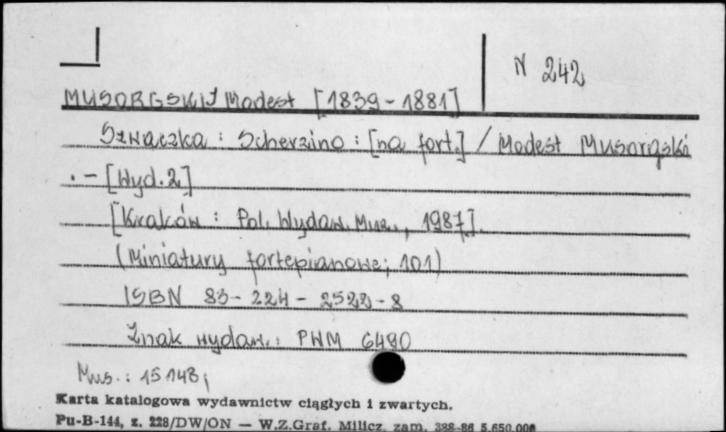 N 242
MUSORGSKIJ Modest [1839-1881]
Szwaczka : Scherzino : [na fort.] / Modest Musorgski
. - [Wyd. 2]
[Kraków : Pol. Wydaw. Muz., 1987].
(Miniatury fortepianowe; 101)
ISBN 83-224-2522-2
Znak wydaw.: PWM 6480
Mus.: 15148;
Karta katalogowa wydawnictw ciągłych i zwartych.
Pu-B-144, z. 228/DW/ON — W.Z.Graf. Milicz, zam. 388-86 5.650.000